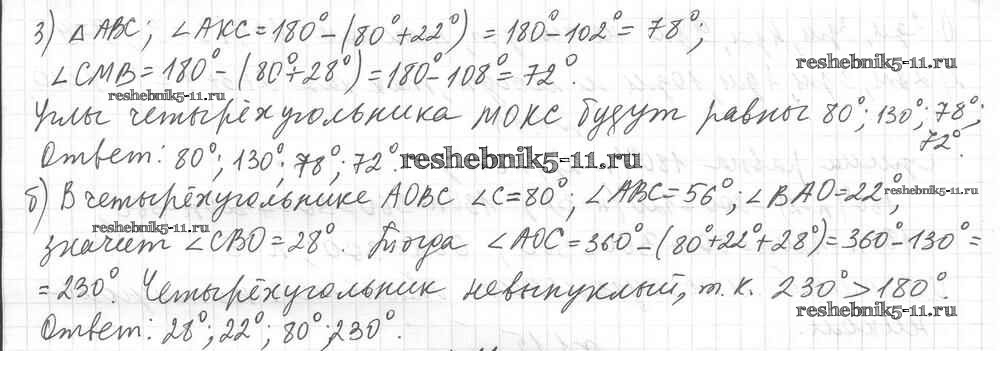 3) △ABC; ∠AKC=180°-(80°+22°) =180°-102°=78°;
∠CMB=180°-(80°+28°)=180°-108°=72°.
reshebnik5-11.ru
reshebnik5-11.ru
Углы четырёхугольника MOKC будут равны 80°; 130°; 78°;
72°.
Ответ: 80°; 130°; 78°; 72°.
reshebnik5-11.ru
б) В четырёхугольнике AOBC ∠C=80°; ∠ABC=56°; ∠BAO=22°,
reshebnik5-11.ru
reshebnik5-11.ru
значит ∠CBO=28°. Тогда ∠AOC=360°-(80°+22°+28°)=360°-130°=
=230°. Четырёхугольник невыпуклый, т.к. 230°>180°.
reshebnik5-11.ru
Ответ: 28°; 22°; 80°; 230°.